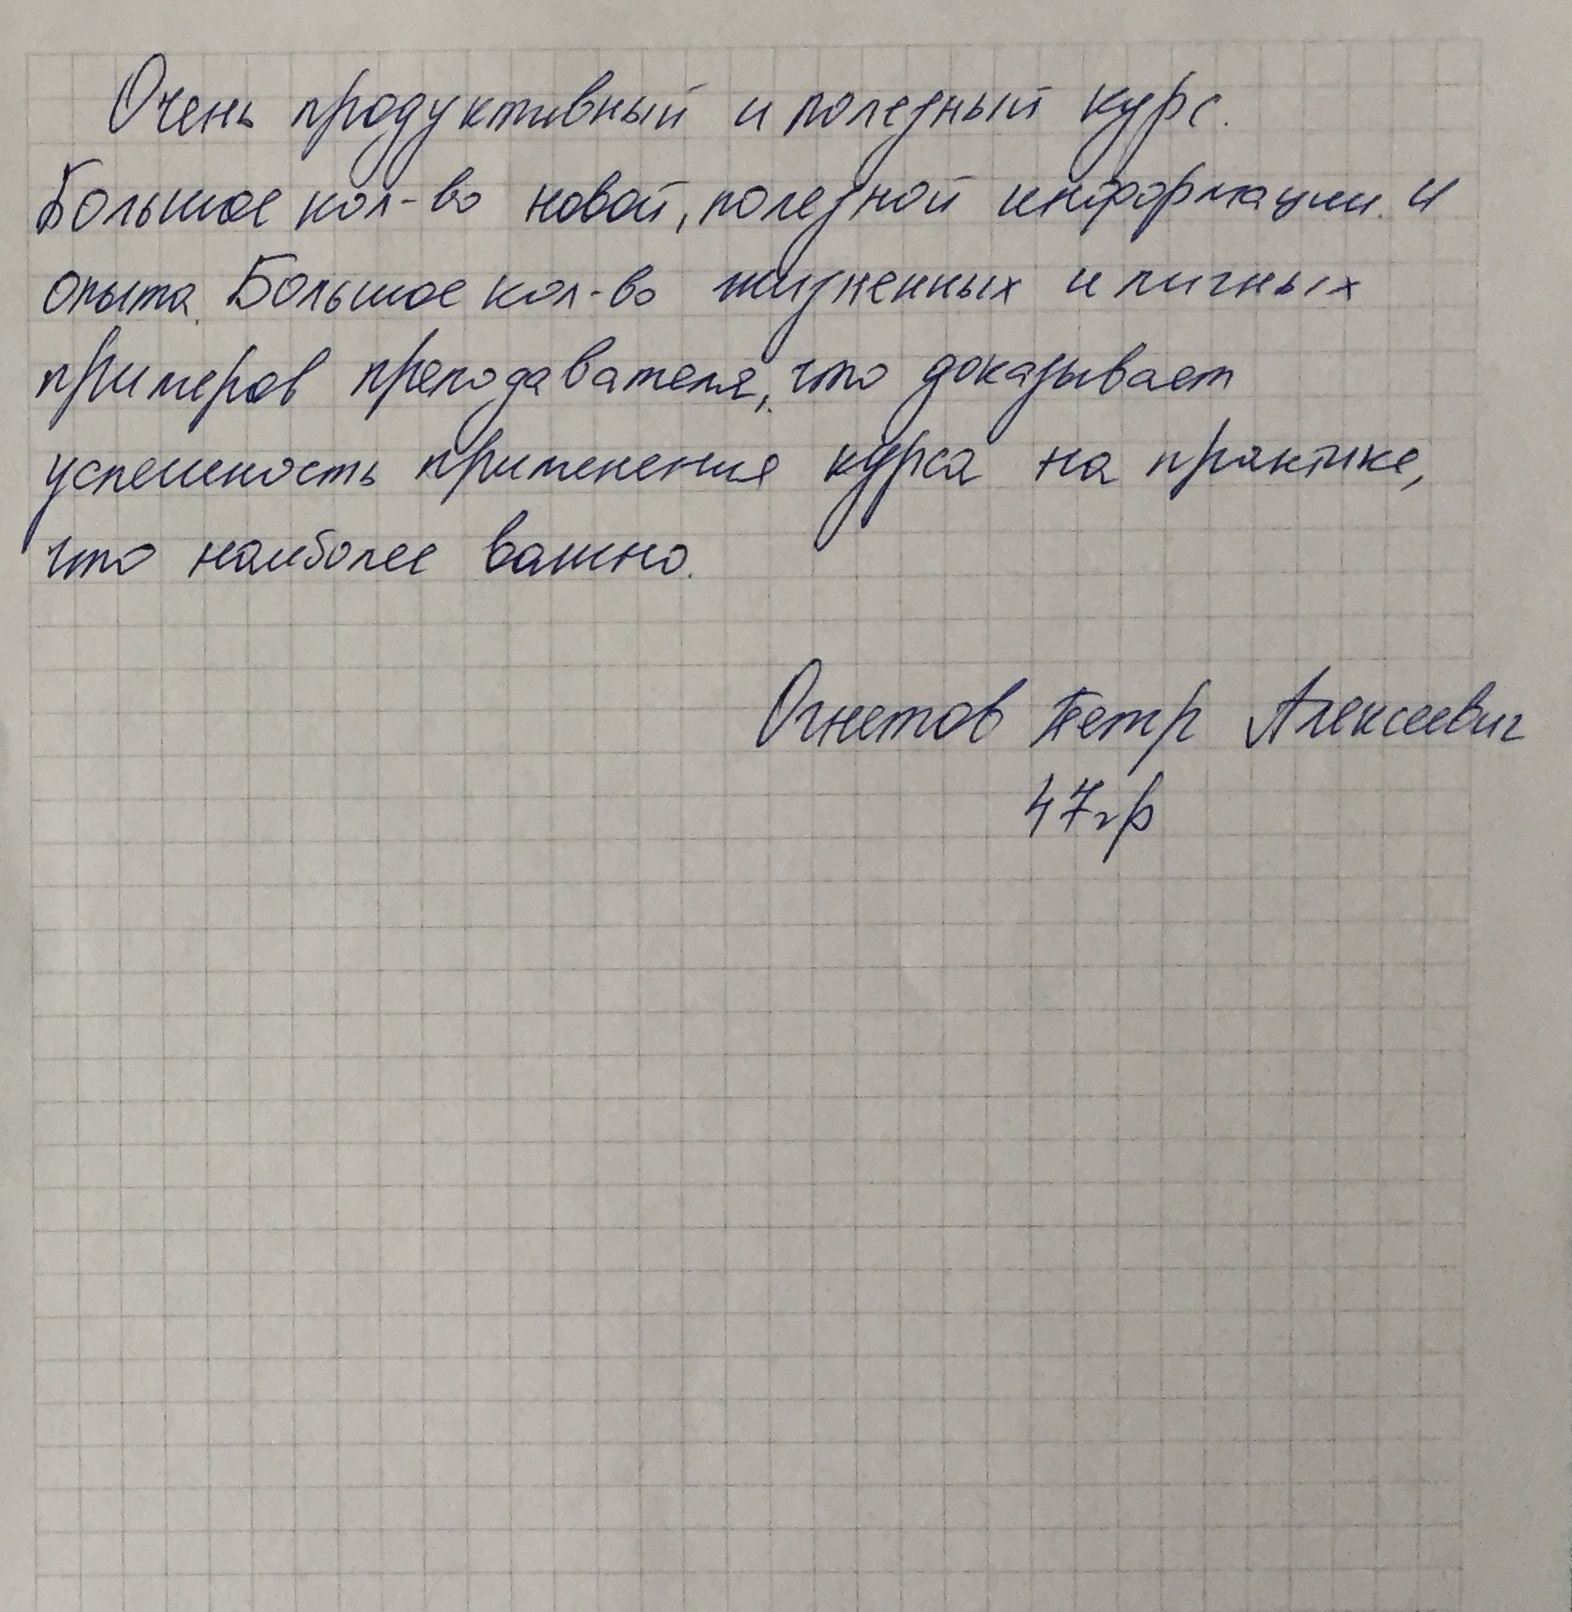 Очень продуктивный и полезный курс.
Большое кол-во новой, полезной информации. и
опыта. Большое кол-во жизненных и личных
примеров преподавателя, что доказывает
успешность применения курса на практике,
что наиболее важно.
Огнетов Петр Алексеевич
47гр